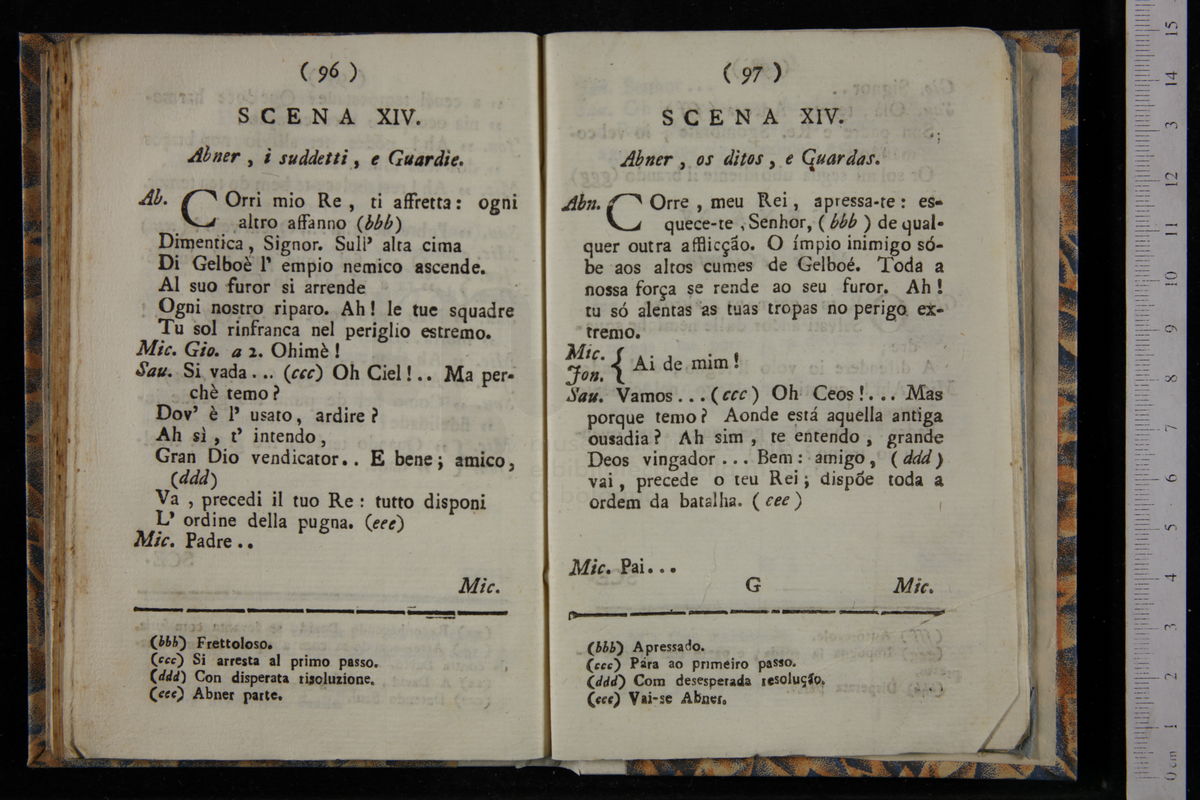 ( 96 )
SCENA XIV.
Abner , i suddetti , e Guardie.
Ab. COrri mio Re , ti affretta : ogni
altro affanno (bbb)
Dimentica , Signor. Sull' alta cima
Di Gelboè l' empio nemico ascende.
Al suo furor si arrende
Ogni nostro riparo. Ah ! le tue squadre
Tu sol rinfranca nel periglio estremo.
Mic. Gio. a 2. Ohimè !
Sau. Si vada . .. (ccc) Oh Ciel ! .. Ma per-
chè temo ?
Dov' è l' usato, ardire ?
Ah sì , t' intendo,
Gran Dio vendicator.. E bene ; amico,
(ddd)
Va , precedi il tuo Re : tutto disponi
L' ordine della pugna. (eee)
Mic. Padre ..
Mic.
(bbb) Frettoloso.
(ccc) Si arresta al primo passo.
(ddd) Con disperata risoluzione.
(eee) Abner parte.
( 97 )
SCENA XIV.
Abner , os ditos , e Guardas.
Abn. COrre , meu Rei , apressa-te : es-
quece-te , Senhor, ( bbb ) de qual-
quer outra afflicção. O ímpio inimigo só-
be aos altos cumes de Gelboé. Toda a
nossa força se rende ao seu furor. Ah !
tu só alentas as tuas tropas no perigo ex-
tremo.
Mic. Jon. { Ai de mim !
Sau. Vamos . . . ( ccc ) Oh Ceos ! . . . Mas
porque temo ? Aonde está aquella antiga
ousadia ? Ah sim , te entendo , grande
Deos vingador . . . Bem : amigo , ( ddd )
vai , precede o teu Rei ; dispõe toda a
ordem da batalha. ( eee )
Mic. Pai . . .
G
Mic.
(bbb) Apressado.
(ccc) Pára ao primeiro passo.
(ddd) Com desesperada resolução.
(eee) Vai-se Abner.
0 cm 1 2 3 4 5 6 7 8 9 10 11 12 13 14 15